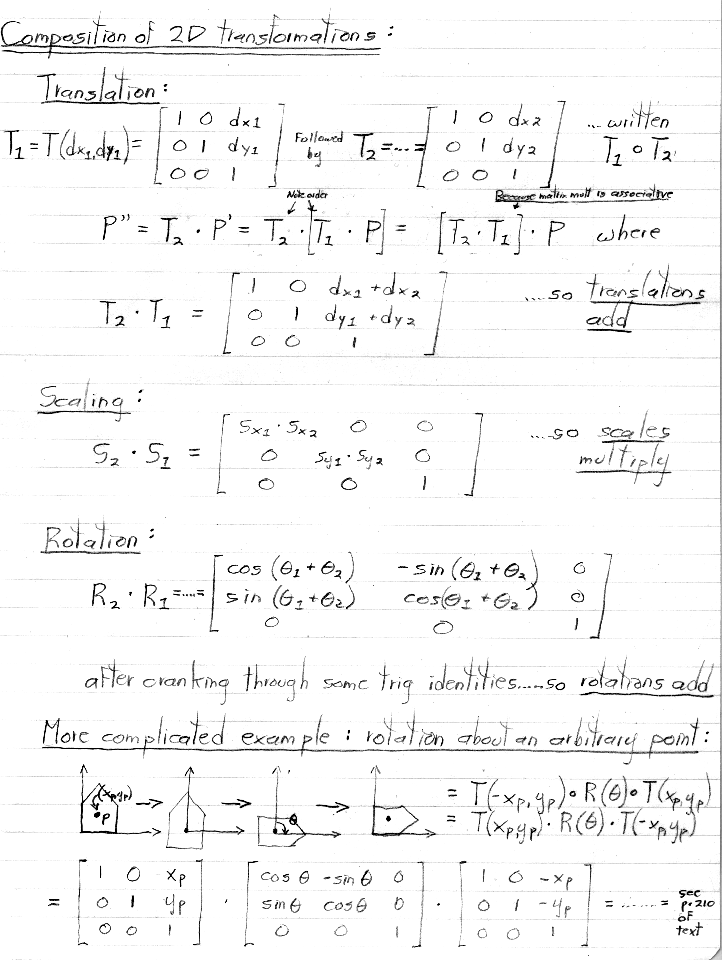 Composition of 2D transformations :
Translation :
T1 = T(dx1, dy1) = [ 1 0 dx1 ; 0 1 dy1 ; 0 0 1 ] Followed by T2 = ... = [ 1 0 dx2 ; 0 1 dy2 ; 0 0 1 ] ... written T1 ∘ T2
Note order
Because matrix mult is associative
P'' = T2 · P' = T2 · [T1 · P] = [T2 · T1] · P where
T2 · T1 = [ 1 0 dx1 + dx2 ; 0 1 dy1 + dy2 ; 0 0 1 ] ....so translations add
Scaling :
S2 · S1 = [ Sx1 · Sx2 0 0 ; 0 Sy1 · Sy2 0 ; 0 0 1 ] ....so scales multiply
Rotation :
R2 · R1 = .... = [ cos (θ1 + θ2) -sin (θ1 + θ2) 0 ; sin (θ1 + θ2) cos(θ1 + θ2) 0 ; 0 0 1 ]
after cranking through some trig identities.....so rotations add
More complicated example : rotation about an arbitrary point :
(xp, yp)
P
θ
= T(-xp, yp) ∘ R(θ) ∘ T(xp, yp)
= T(xp, yp) · R(θ) · T(-xp, yp)
= [ 1 0 xp ; 0 1 yp ; 0 0 1 ] · [ cos θ -sin θ 0 ; sin θ cos θ 0 ; 0 0 1 ] · [ 1 0 -xp ; 0 1 -yp ; 0 0 1 ] = ....... = see p. 210 of text